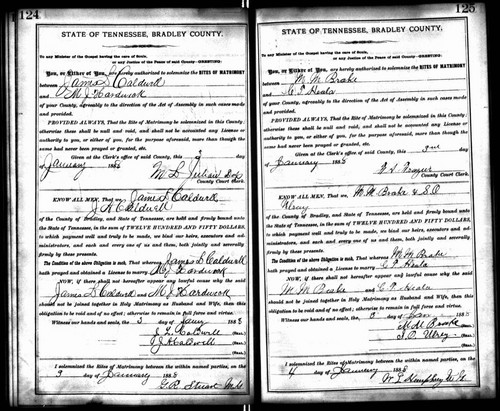 124
STATE OF TENNESSEE, BRADLEY COUNTY.
To any Minister of the Gospel having the care of souls,
or any Justice of the Peace of said County—GREETING:
You, or Either of You, are hereby authorized to solemnize the RITES OF MATRIMONY
between James L Caldwell
and M J Hardwick
of your County, agreeably to the direction of the Act of Assembly in such cases made
and provided.
PROVIDED ALWAYS, That the Rite of Matrimony be solemnized in this county:
otherwise these shall be null and void, and shall not be accounted any License or
authority to you, or either of you, for the purpose aforesaid, more than the same
had never been prayed or granted, etc.
Given at the Clerk's office of said County, this 3 day of
January 1888
County Court Clerk.
KNOW ALL MEN, That James L Caldwell
J H Caldwell
of the County of Bradley, and State of Tennessee, are held and firmly bound unto
the State of Tennessee, in the sum of TWELVE HUNDRED AND FIFTY DOLLARS,
to which payment well and truly to be made, we bind our heirs, executors and ad-
ministrators, and each and every one of us and them, both jointly and severally
firmly by these presents.
The Condition of the above Obligation is such, That whereas James L Caldwell
hath prayed and obtained a License to marry M J Hardwick
NOW, if there shall not hereafter appear any lawful cause why the said
James L Caldwell and M J Hardwick
should not be joined together in Holy Matrimony as Husband and Wife, then this
obligation to be void and of no effect; otherwise to remain in full force and virtue.
Witness our hands and seals, the 3 day of Jany 1888
J L Caldwell
J H Caldwell
I solemnized the Rites of Matrimony between the within named parties, on the
day of January 1888
G. R. Stuart M G
125
STATE OF TENNESSEE, BRADLEY COUNTY.
To any Minister of the Gospel having the care of souls,
or any Justice of the Peace of said County—GREETING:
You, or Either of You, are hereby authorized to solemnize the RITES OF MATRIMONY
between M. M. Brake
and
of your County, agreeably to the direction of the Act of Assembly in such cases
made and provided.
PROVIDED ALWAYS, That the Rite of Matrimony be solemnized in this County:
otherwise these shall be null and void, and shall not be accounted any License or
authority to you, or either of you, for the purpose aforesaid, more than though the
same had never been prayed or granted, etc.
Given at the Clerk's office of said County, this 3rd day
of January 1888
County Court Clerk.
KNOW ALL MEN, That M. M. Brake & S. O
Ulrey
of the County of Bradley, and State of Tennessee, are held and firmly bound unto the
State of Tennessee, in the sum of TWELVE HUNDRED AND FIFTY DOLLARS,
to which payment well and truly to be made, we bind our heirs, executors and ad-
ministrators, and each and every one of us and them, both jointly and severally
firmly by these presents.
The Condition of the above Obligation is such, That whereas M M Brake
hath prayed and obtained a License to marry
NOW, if there shall not hereafter appear any lawful cause why the said
M M Brake and
should not be joined together in Holy Matrimony as Husband and Wife, then this
obligation to be void and of no effect; otherwise to remain in full force and virtue.
Witness our hands and seals, the 3 day of Jan 1888
M M Brake
S. O. Ulrey
I solemnized the Rites of Matrimony between the within named parties, on the
4 day of January 1888
W L Humphrey M. G